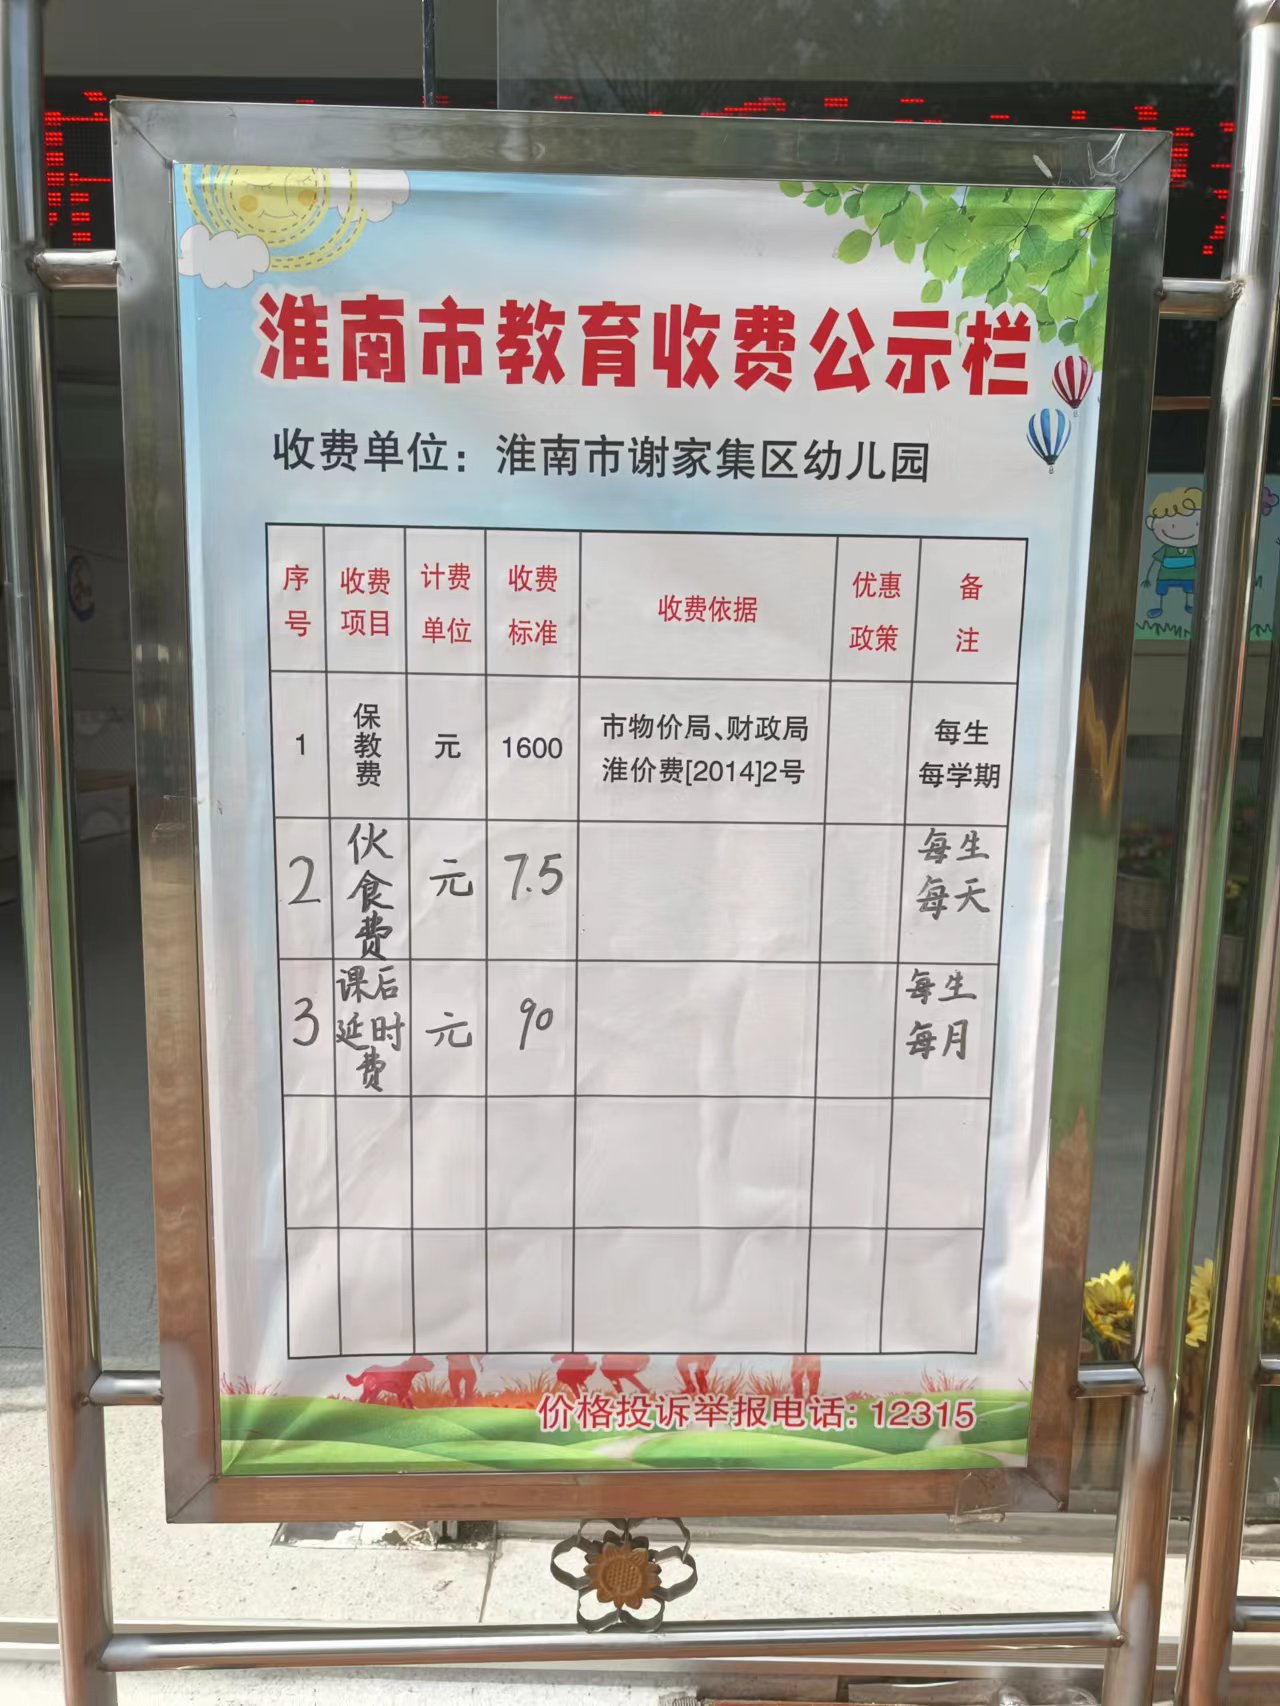 淮南市教育收费公示栏
收费单位：淮南市谢家集区幼儿园
序号 收费项目 计费单位 收费标准 收费依据 优惠政策 备注
1 保教费 元 1600 市物价局、财政局 淮价费[2014]2号 每生每学期
2 伙食费 元 7.5 每生每天
3 课后延时费 元 90 每生每月
价格投诉举报电话：12315